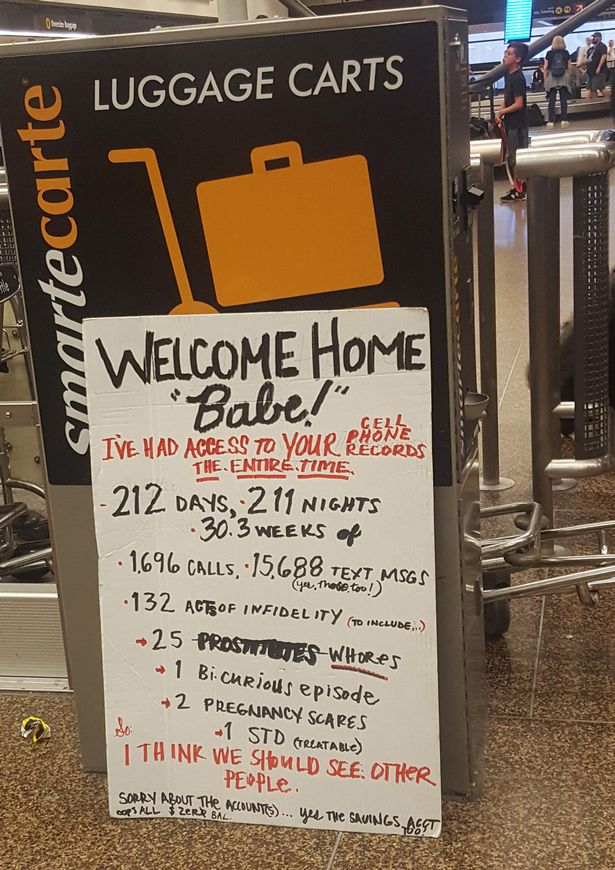 Oversize Baggage
LUGGAGE CARTS
smartecarte
WELCOME HOME
"Babe!"
I'VE HAD ACCESS TO YOUR CELL PHONE RECORDS
THE ENTIRE TIME.
-212 DAYS, ·211 NIGHTS
·30.3 WEEKS of
·1,696 CALLS, ·15,688 TEXT MSGS
(yes, those too!)
·132 ACTS OF INFIDELITY (TO INCLUDE,..)
→25 PROSTITUTES WHORES
→1 Bi.curious episode
→2 PREGNANCY SCARES
→1 STD (TREATABLE)
So:
I THINK WE SHOULD SEE OTHER
PEOPLE.
SORRY ABOUT THE ACCOUNT(S)... yes THE SAVINGS ACCT
oops ALL $ ZERO BAL. TOO!